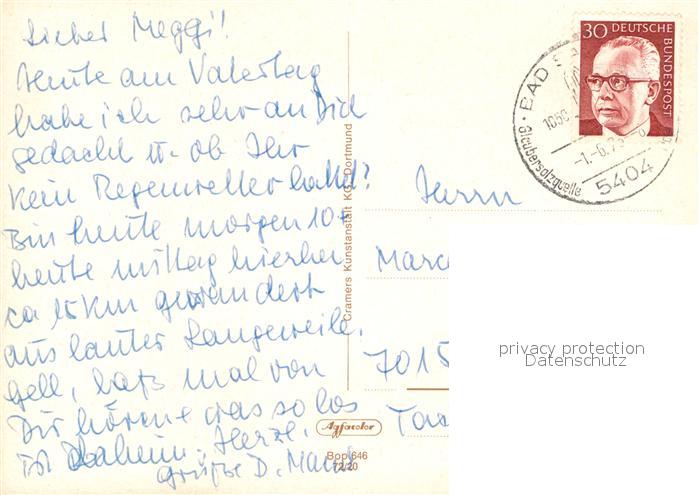 Lieber Meggi!
Heute am Vatertag
habe ich sehr an Dich
gedacht u. ob Ihr
kein Regenwetter habt?
Bin heute morgen 10 +
heute mittag hierher
ca 15 km gewandert
aus lauter Langeweile.
Gell, laß mal von
Dir hören was so los
ist daheim. Herzl.
Grüße D.
30 DEUTSCHE
BUNDESPOST
BAD
-1.-6.73
Glaubersalzquelle
5404
Herrn
7015
Cramers Kunstanstalt KG. Dortmund
Agfacolor
Bop 646
72/20
privacy protection
Datenschutz